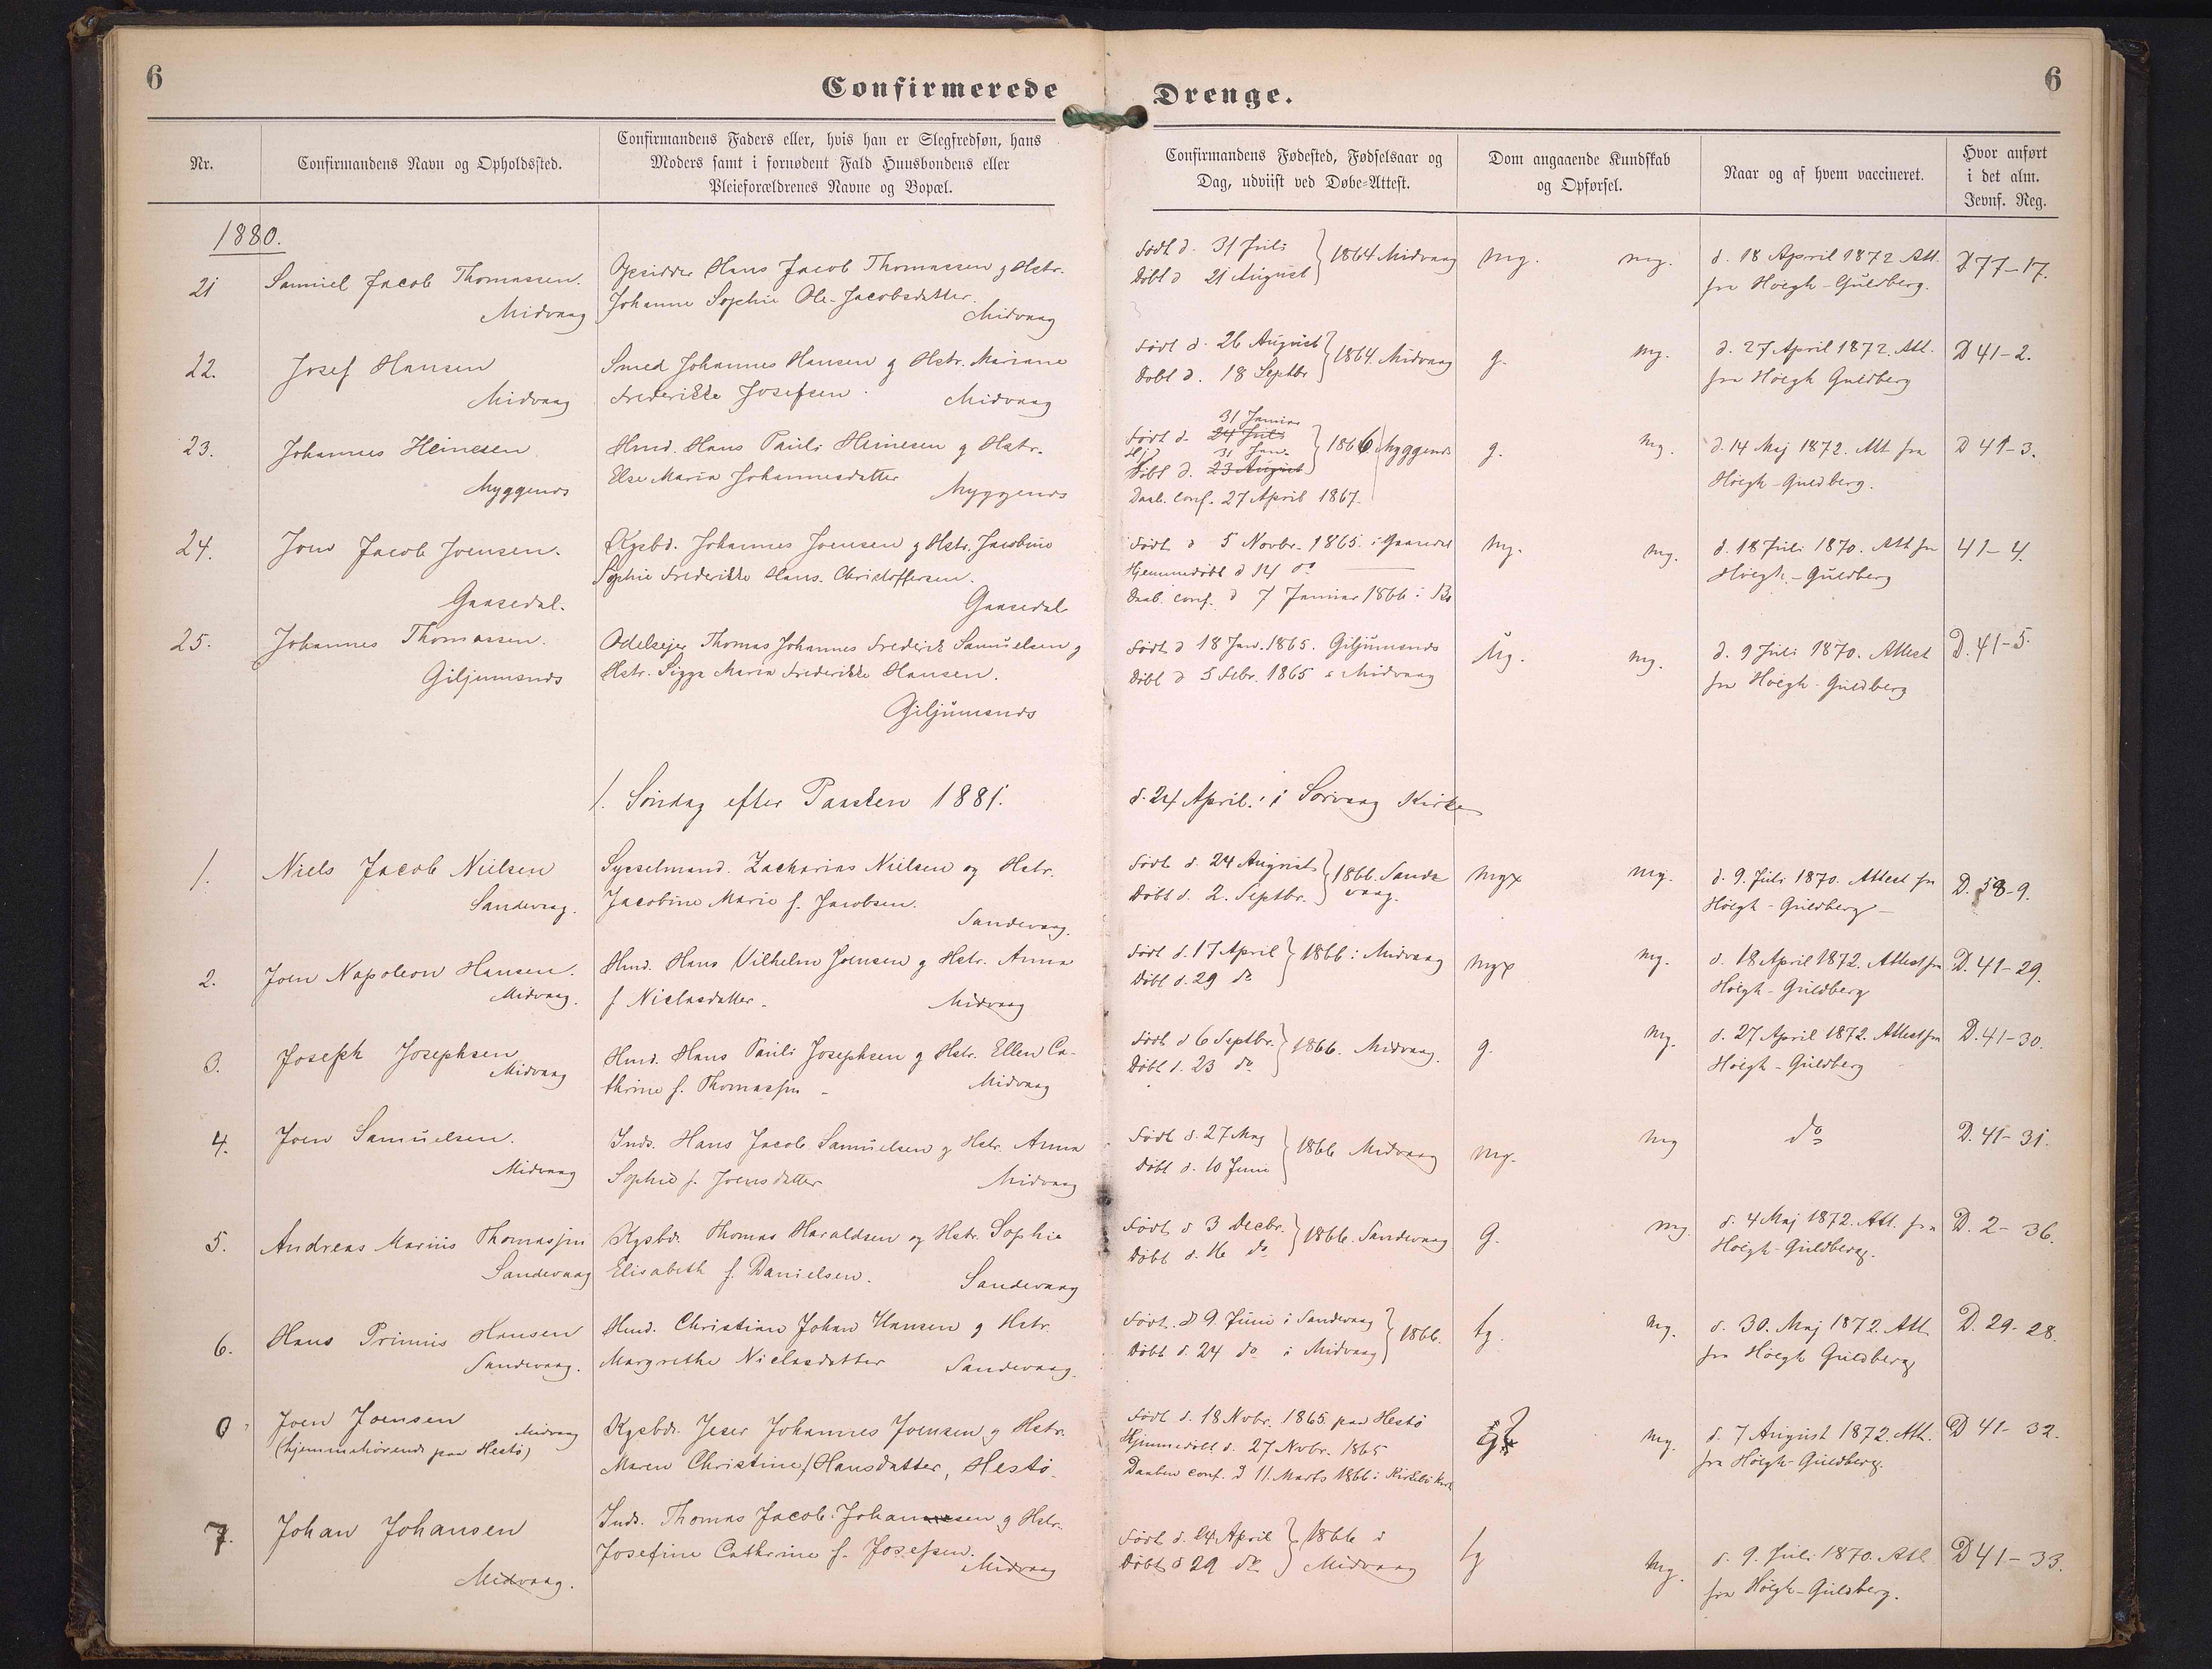 6
Confirmerede Drenge.
6
Nr.
Confirmandens Navn og Opholdssted.
Confirmandens Faders eller, hvis han er Slegfredsøn, hans
Moders samt i fornødent Fald Huusbondens eller
Pleieforældrenes Navne og Bopæl.
Confirmandens Fødested, Fødselsaar og
Dag, udviist ved Døbe-Attest.
Dom angaaende Kundskab
og Opførsel.
Naar og af hvem vaccineret.
Hvor anført
i det alm.
Jevnf. Reg.
1880.
21
Samuel Jacob Thomassen.
Midvaag
Opsidder Hans Jacob Thomassen g Hstr.
Johanne Sophie Ole-Jacobsdatter.
Midvaag
Født d. 31 Juli
Døbt d 21 August
1864 Midvaag
mg.
mg.
d. 18 April 1872 Att.
fra Høegh-Guldberg.
D 77-17.
22.
Josef Hansen
Midvaag
Smed Johannes Hansen g Hstr. Mariane
Frederikke Josefsen.
Midvaag
Født d. 26 August
Døbt d. 18 Septbr
1864 Midvaag
g.
mg.
d. 27 April 1872. Att.
fra Høegh Guldberg
D 41-2.
23.
Johannes Heinesen
Myggenæs
Hmd. Hans Pauli Heinesen g Hstr.
Else Maria Johannesdatter
Myggenæs
31 Januar
Født d. 24 Juli
Hj d 31 Jan.
Døbt d. 23 August
1866 Myggenæs
Daab. Conf. 27 April 1867.
g.
mg.
d. 14 Maj 1872. Att fra
Høegh-Guldberg.
D 41-3.
24.
Joen Jacob Joensen.
Gaasedal.
Kgsbd. Johannes Joensen g Hstr. Jacobine
Sophie Frederikke Hans. Christoffersen.
Gaasedal
Født d 5 Novbr. 1865. i Gaasedal
Hjemmedøbt d 14 do
Daab. conf. d 7 Januar 1866 i Bø
mg.
mg.
d. 18 Juli 1870. Att fra
Høegh-Guldberg
41-4.
25.
Johannes Thomassen.
Giljumsnæs
Odelsejer Thomas Johannes Frederik Samuelsen g
Hstr. Sigga Maria Frederikke Hansen.
Giljumsnæs
Født d 18 Jan. 1865. Giljumsnæs
Døbt d 5 Febr. 1865 i Midvaag
Mg.
mg.
d. 9 Juli 1870. Attest
fra Høegh-Guldberg
D. 41-5.
1. Søndag efter Paasken 1881.
d. 24 April. i Sørvaag Kirke
1.
Niels Jacob Nielsen
Sandevaag.
Sysselmand. Zacharias Nielsen og Hstr.
Jacobine Marie f. Jacobsen.
Sandevaag.
Født d. 24 August
Døbt d. 2. Septbr.
1866. Sande
vaag.
mgx
mg.
d. 9. Juli 1870. Attest fra
Høegh-Guldberg
D. 58-9.
2.
Joen Napoleon Hansen.
Midvaag.
Hmd. Hans Vilhelm Joensen g Hstr. Anna
f Niclasdatter.
Midvaag
Født d. 17 April
Døbt d. 29 do
1866 i Midvaag
mgx
mg.
d. 18 April 1872. Attest fra
Høegh-Guldberg
D. 41-29.
3.
Joseph Josephsen
Midvaag
Hmd. Hans Pauli Josephsen g Hstr. Ellen Ca-
thrine f. Thomassen
Midvaag
Født d 6 Septbr.
Døbt d. 23 do
1866. Midvaag.
g.
mg.
d. 27 April 1872. Attest fra
Høegh-Guldberg
D. 41-30.
4.
Joen Samuelsen.
Midvaag
Inds. Hans Jacob Samuelsen g Hstr. Anna
Sophie f. Joensdatter
Midvaag
Født d. 27 Maj
Døbt d. 10 Juni
1866 Midvaag
mg.
mg
do
D. 41-31.
5.
Andreas Marius Thomassen
Sandevaag
Kgsbd. Thomas Haraldsen og Hstr. Sophia
Elisabeth f. Danielsen.
Sandevaag
Født d 3 Decbr.
Døbt d. 16 do
1866. Sandevaag
g.
mg.
d. 4 Maj 1872. Att. fra
Høegh-Guldberg.
D. 2-36.
6.
Hans Primus Hansen
Sandevaag.
Hmd. Christian Johan Hansen g Hstr.
Margrethe Niclasdatter
Sandevaag.
Født. d 9. Juni i Sandevaag
Døbt d. 24 do i Midvaag
1866.
tg.
mg.
d. 30. Maj 1872. Att.
fra Høegh Guldberg
D. 29-28.
0
Joen Joensen
Midvaag
(hjemmehørende paa Hestø)
Kgsbd. Jeser Johannes Joensen g Hstr.
Maren Christine f Hansdatter, Hestø.
Født d. 18 Nvbr. 1865. paa Hestø
Hjemmedøbt d. 27 Nvbr. 1865
Daaben conf. d 11. Marts 1866 i Kirkebø Kirk
mg.
d. 7 August 1872. Att.
fra Høegh-Guldberg.
D 41-32.
7.
Johan Johansen
Midvaag.
Inds. Thomas Jacob Johannesen g Hstr.
Josefine Cathrine f. Josefsen.
Midvaag
Født d. 24 April
Døbt d 29 do
1866 i
Midvaag
tg
mg.
d. 9. Juli 1870. Att
fra Høegh-Guldberg.
D 41-33.